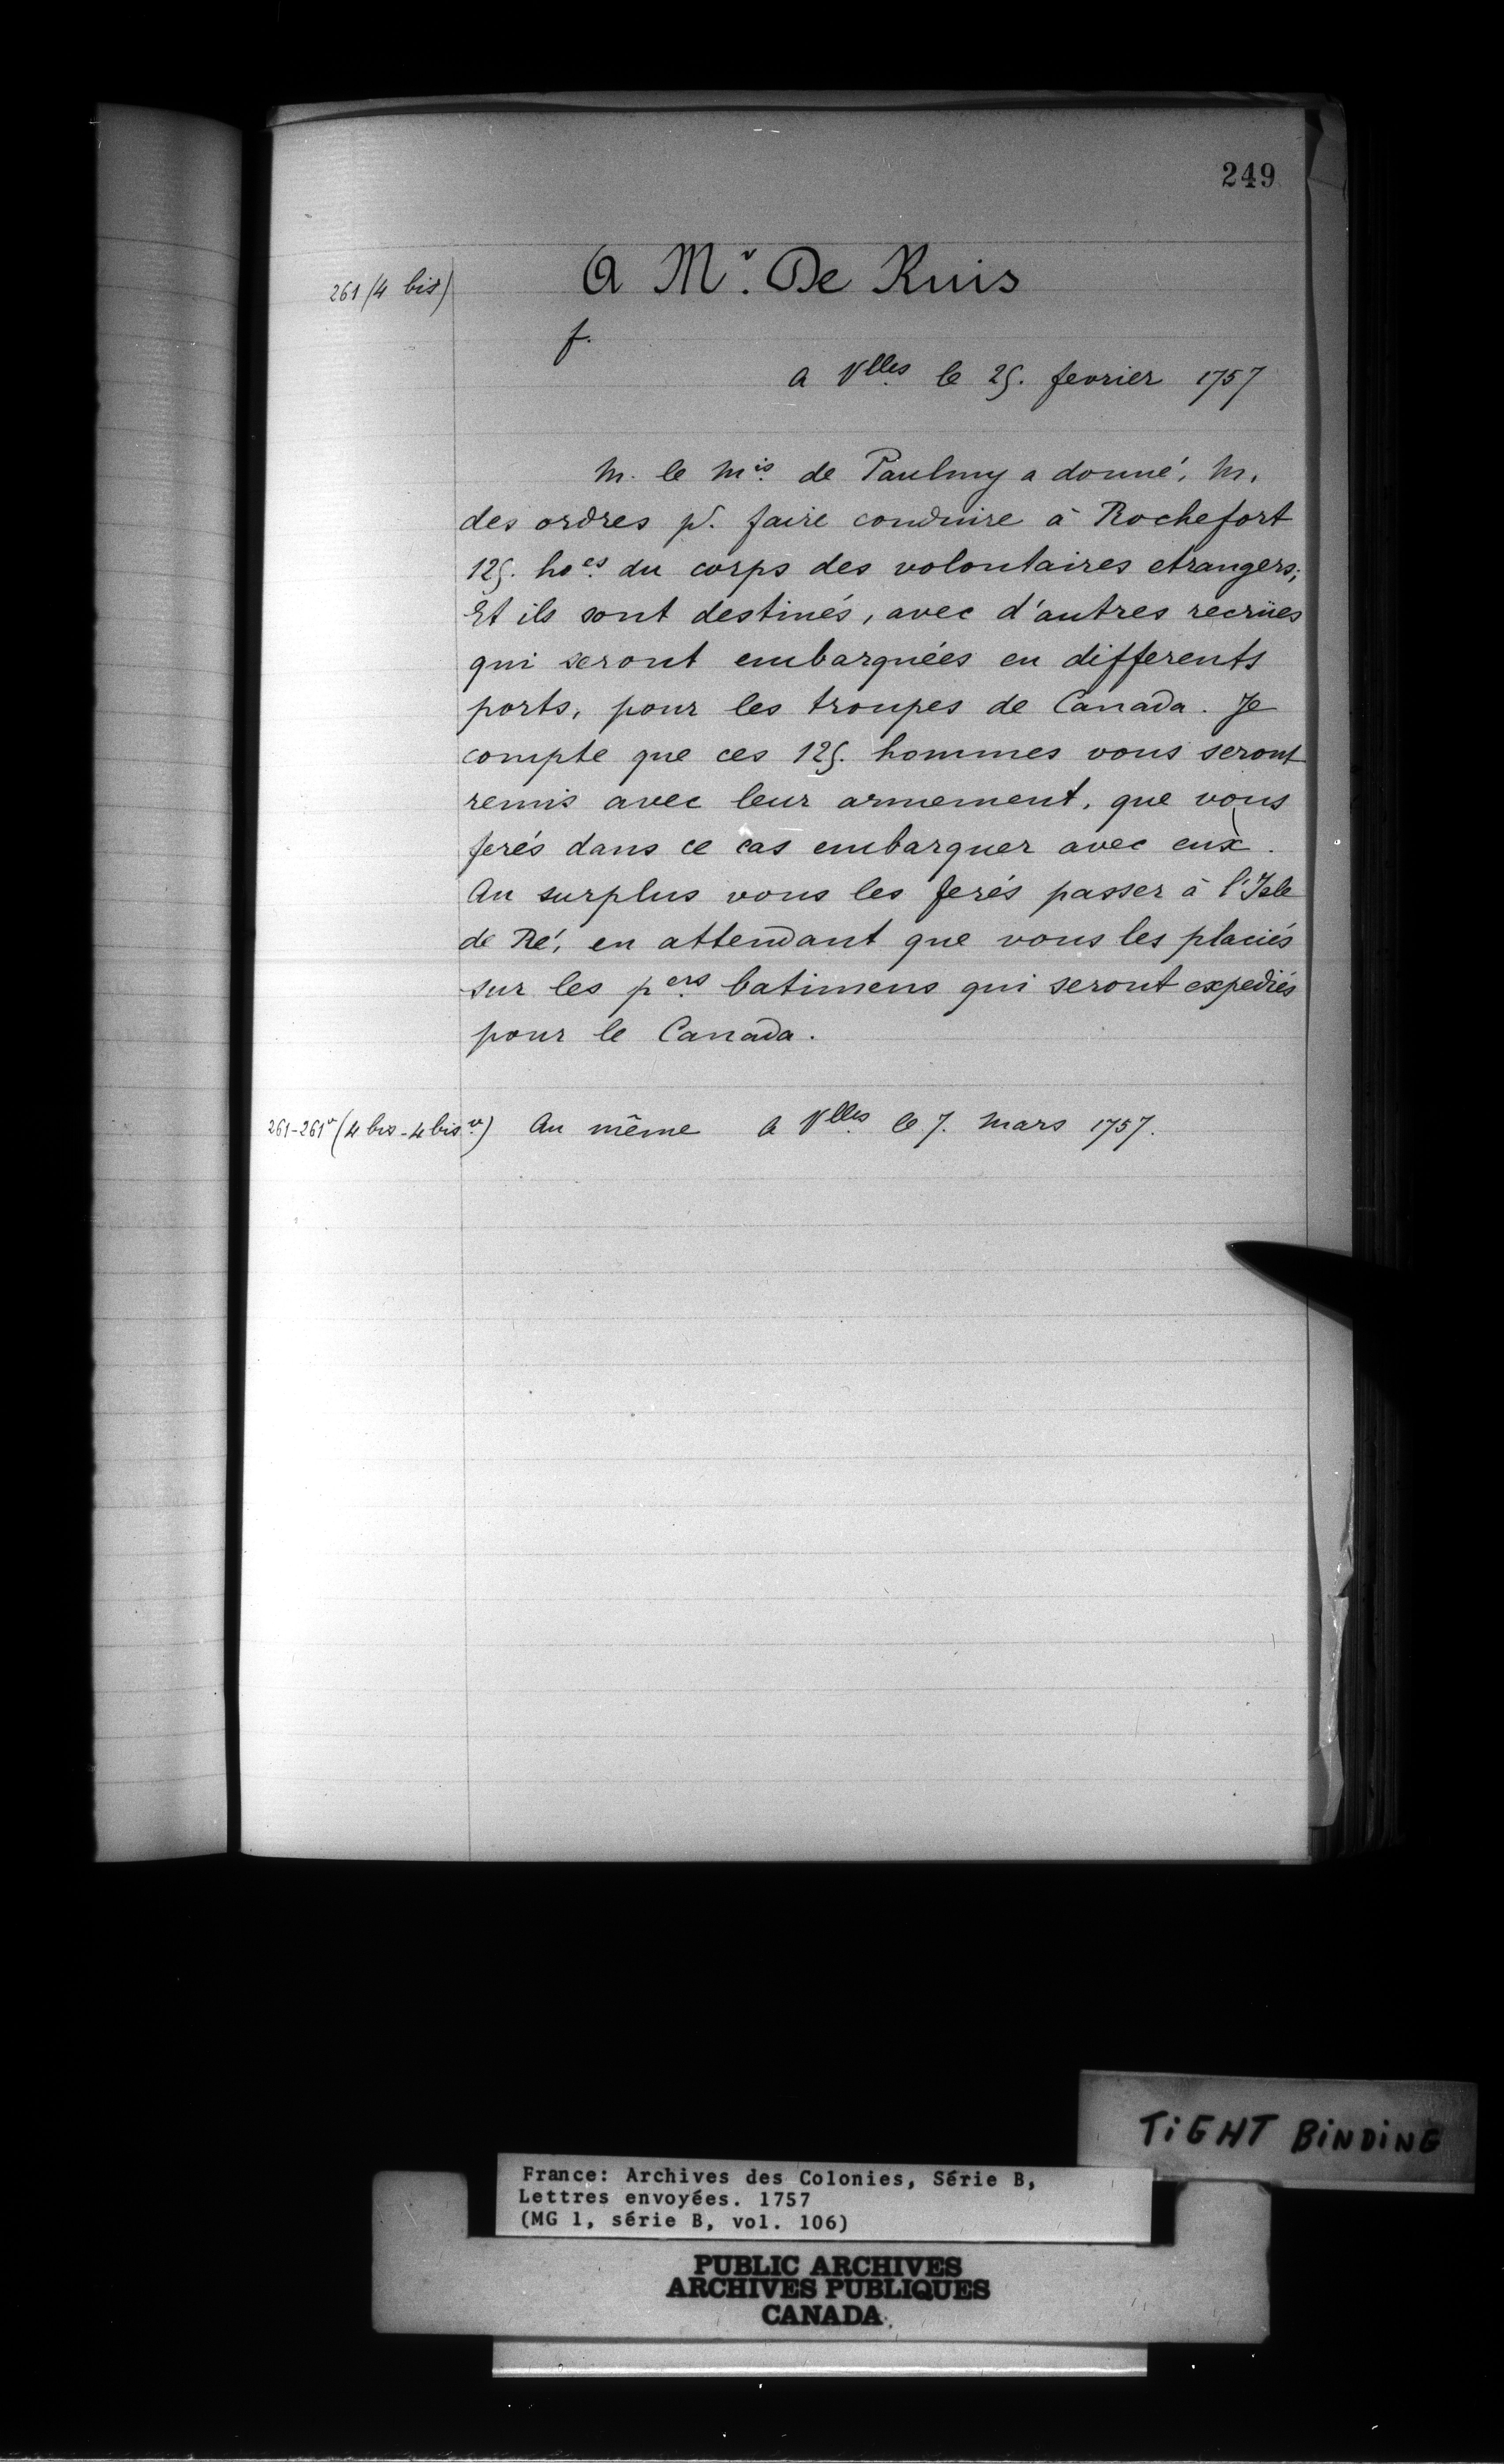 249
261 (4 bis)
A Mr. De Ruis
f.
a Vlles le 25. fevrier 1757
M. le Mis. de Paulmy a donné, M.
des ordres pr. faire conduire à Rochefort
125. hoes. du corps des volontaires etrangers;
Et ils sont destinés, avec d'autres recrües
qui seront embarquées en differents
ports, pour les troupes de Canada. Je
compte que ces 125. hommes vous seront
remis avec leur armement, que vous
ferés dans ce cas embarquer avec eux.
Au surplus vous les ferés passer à l'Isle
de Ré, en attendant que vous les placiés
sur les pers. batimens qui seront expediés
pour le Canada.
261-261v (4 bis - 4 bis v.) Au même a Vlles. le 7. Mars 1757.
TiGHT BiNDiNG
France: Archives des Colonies, Série B,
Lettres envoyées. 1757
(MG 1, série B, vol. 106)
PUBLIC ARCHIVES
ARCHIVES PUBLIQUES
CANADA